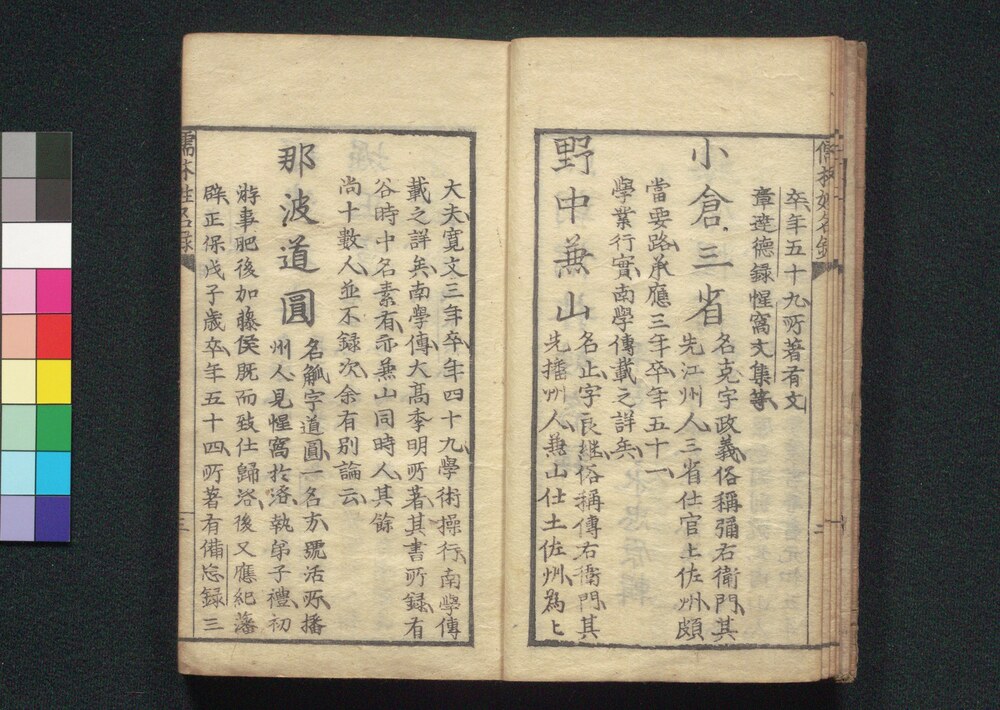 卒、年五十九、所著有文
章達德録惺窩文集等、
小倉三省
名克字政義俗稱彌右衛門、其
先江州人、三省仕官土佐州、頗
當要路、承應三年卒、年五十一、
學業行實、南學傳載之詳矣、
野中兼山
名止字良継俗稱傳右衞門、其
先播州人、兼山仕土佐州、為上
大夫、寛文三年卒、年四十九、學術操行、南學傳
載之詳矣、南學傳、大髙季明所著、其書所録、有
谷時中名素有、亦兼山同時人、其餘
尚十數人、並不録次、余有別論云、
那波道圓
名觚字道圓、一名方、號活所、播
州人、見惺窩於洛、執弟子禮、初
游事肥後加藤侯、既而致仕歸洛、後又應紀藩
辟、正保戊子歳卒、年五十四、所著有備忘録三
儒林姓名録
三
儒林姓名録
二